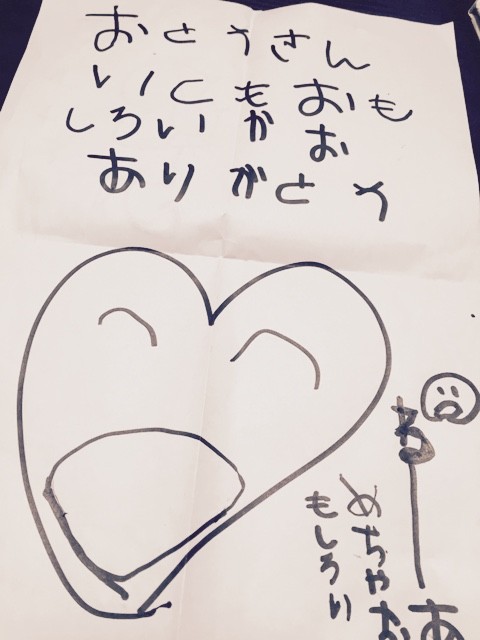 おとうさん
いつもおも
しろいかお
ありがとう
めちゃお
もしろい